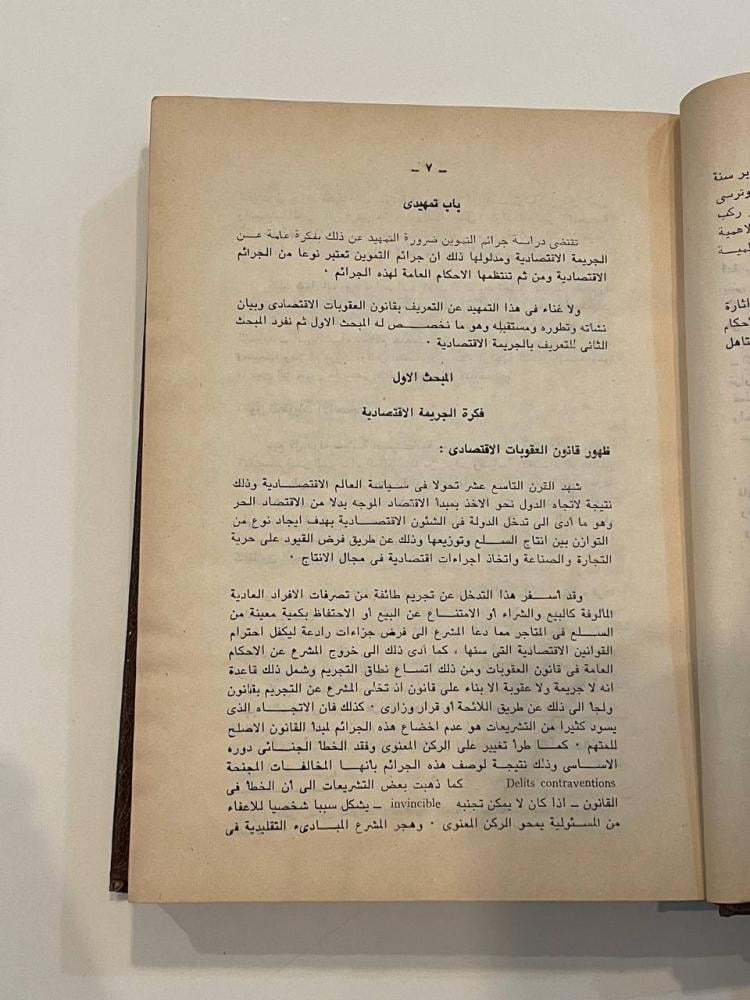 ـ ٧ ـ
باب تمهيدى
تقتضى دراسة جرائم التموين ضرورة التمهيد عن ذلك بفكرة عامة عن
الجريمة الاقتصادية ومدلولها ذلك ان جرائم التموين تعتبر نوعا من الجرائم
الاقتصادية ومن ثم تنتظمها الاحكام العامة لهذه الجرائم ٠
ولا غناء فى هذا التمهيد عن التعريف بقانون العقوبات الاقتصادى وبيان
نشاته وتطوره ومستقبله وهو ما نخصص له المبحث الاول ثم نفرد المبحث
الثانى للتعريف بالجريمة الاقتصادية ٠
المبحث الاول
فكرة الجريمة الاقتصادية
ظهور قانون العقوبات الاقتصادى :
شهد القرن التاسع عشر تحولا فى سياسة العالم الاقتصادية وذلك
نتيجة لاتجاه الدول نحو الاخذ بمبدأ الاقتصاد الموجه بدلا من الاقتصاد الحر
وهو ما أدى الى تدخل الدولة فى الشئون الاقتصادية بهدف ايجاد نوع من
التوازن بين انتاج السلع وتوزيعها وذلك عن طريق فرض القيود على حرية
التجارة والصناعة واتخاذ اجراءات اقتصادية فى مجال الانتاج ٠
وقد أسفر هذا التدخل عن تجريم طائفة من تصرفات الافراد العادية
المألوفة كالبيع والشراء أو الامتناع عن البيع أو الاحتفاظ بكمية معينة من
السلع فى المتاجر مما دعا المشرع الى فرض جزاءات رادعة ليكفل احترام
القوانين الاقتصادية التى سنها ، كما أدى ذلك الى خروج المشرع عن الاحكام
العامة فى قانون العقوبات ومن ذلك اتساع نطاق التجريم وشمل ذلك قاعدة
انه لا جريمة ولا عقوبة الا بناء على قانون اذ تخلى المشرع عن التجريم بقانون
ولجأ الى ذلك عن طريق اللائحة أو قرار وزارى ٠ كذلك فان الاتجاه الذى
يسود كثيرا من التشريعات هو عدم اخضاع هذه الجرائم لمبدأ القانون الاصلح
للمتهم ٠ كما طرأ تغيير على الركن المعنوى وفقد الخطأ الجنائى دوره
الاساسى وذلك نتيجة لوصف هذه الجرائم بأنها المخالفات المجنحة
Delits contraventions كما ذهبت بعض التشريعات الى أن الخطأ فى
القانون ـ اذا كان لا يمكن تجنبه invincible ـ يشكل سببا شخصيا للاعفاء
من المسئولية يمحو الركن المعنوى ٠ وهجر المشرع المبادىء التقليدية فى
ير سنة
وترسى
ركب
لاهمية
اثارة
حكام